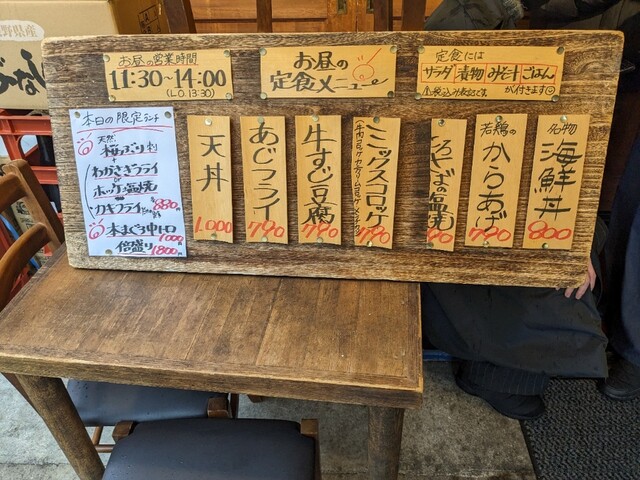 野県産
お昼の営業時間
11:30~14:00
(L.O.13:30)
お昼の
定食メニュー
定食には
サラダ 漬物 みそ汁 ごはん
が付きます
本日の限定ランチ
天然
わかさぎフライ
or
ホッケ塩焼
カキフライ
880
本まぐろ中トロ
1000
倍盛り
1800円
天丼
1.000
あじフライ
790
牛すじ豆腐
790
ミックスコロッケ
790
若鶏の
からあげ
790
名物
海鮮丼
800